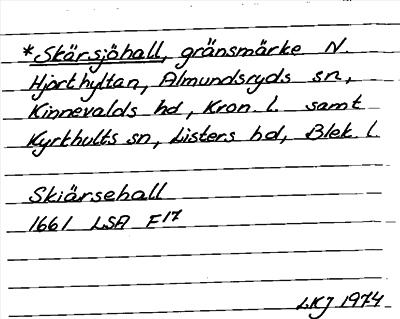 *Skärsjöhall, gränsmärke N.
Hjorthyltan, Almundsryds sn,
Kinnevalds hd, Kron. l. samt
Kyrkhults sn, Listers hd, Blek. l
Skiärsehall
1661 LSA F17
LKJ 1974